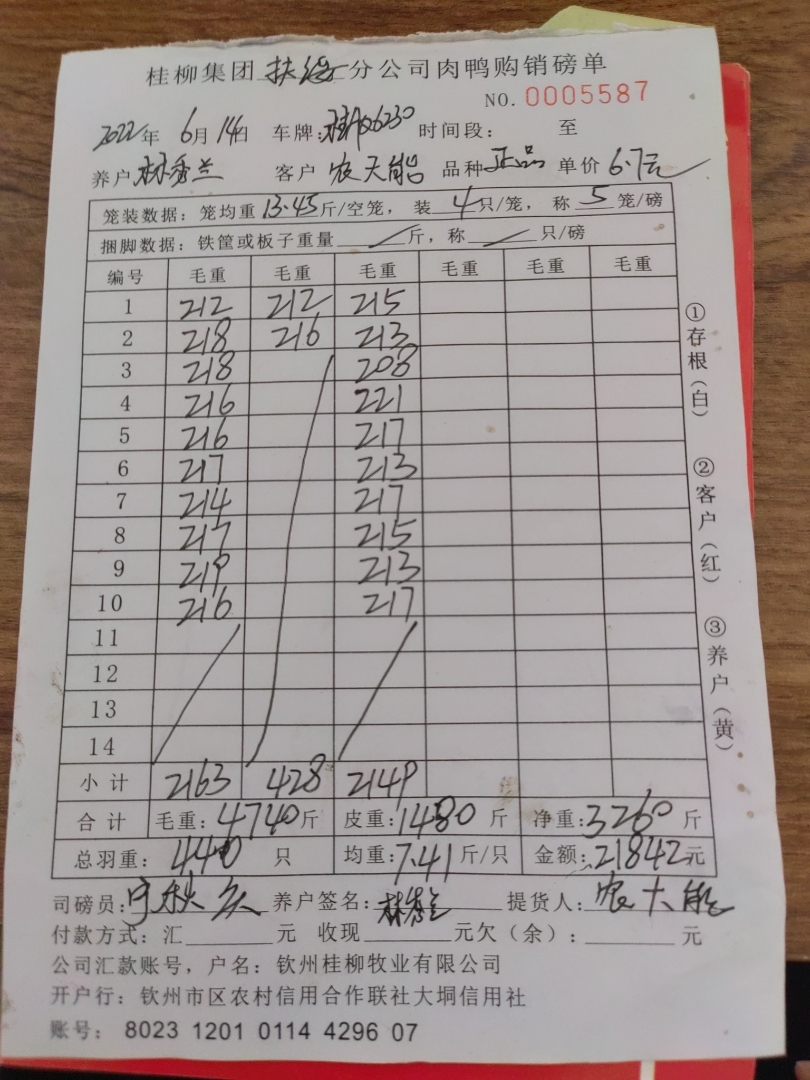 桂柳集团 扶绥 分公司肉鸭购销磅单
NO. 0005587
2022年 6月14日 车牌: 时间段: 至
养户 林秀兰 客户 农天能 品种 正品 单价 6.7元
笼装数据: 笼均重 13.45 斤/空笼, 装 4 只/笼, 称 5 笼/磅
捆脚数据: 铁筐或板子重量 / 斤, 称 / 只/磅
编号 毛重 毛重 毛重 毛重 毛重 毛重
1 212 212 215
2 218 216 213
3 218 208
4 216 221
5 216 217
6 217 213
7 214 217
8 217 215
9 219 213
10 216 217
11
12
13
14
小计 2163 428 2149
合计 毛重: 4740 斤 皮重: 1480 斤 净重: 3260 斤
总羽重: 440 只 均重: 7.41 斤/只 金额: 21842 元
司磅员: 养户签名: 林秀兰 提货人: 农大能
付款方式: 汇 元 收现 元欠(余): 元
公司汇款账号, 户名: 钦州桂柳牧业有限公司
开户行: 钦州市区农村信用合作联社大垌信用社
账号: 8023 1201 0114 4296 07
①存根(白)
②客户(红)
③养户(黄)